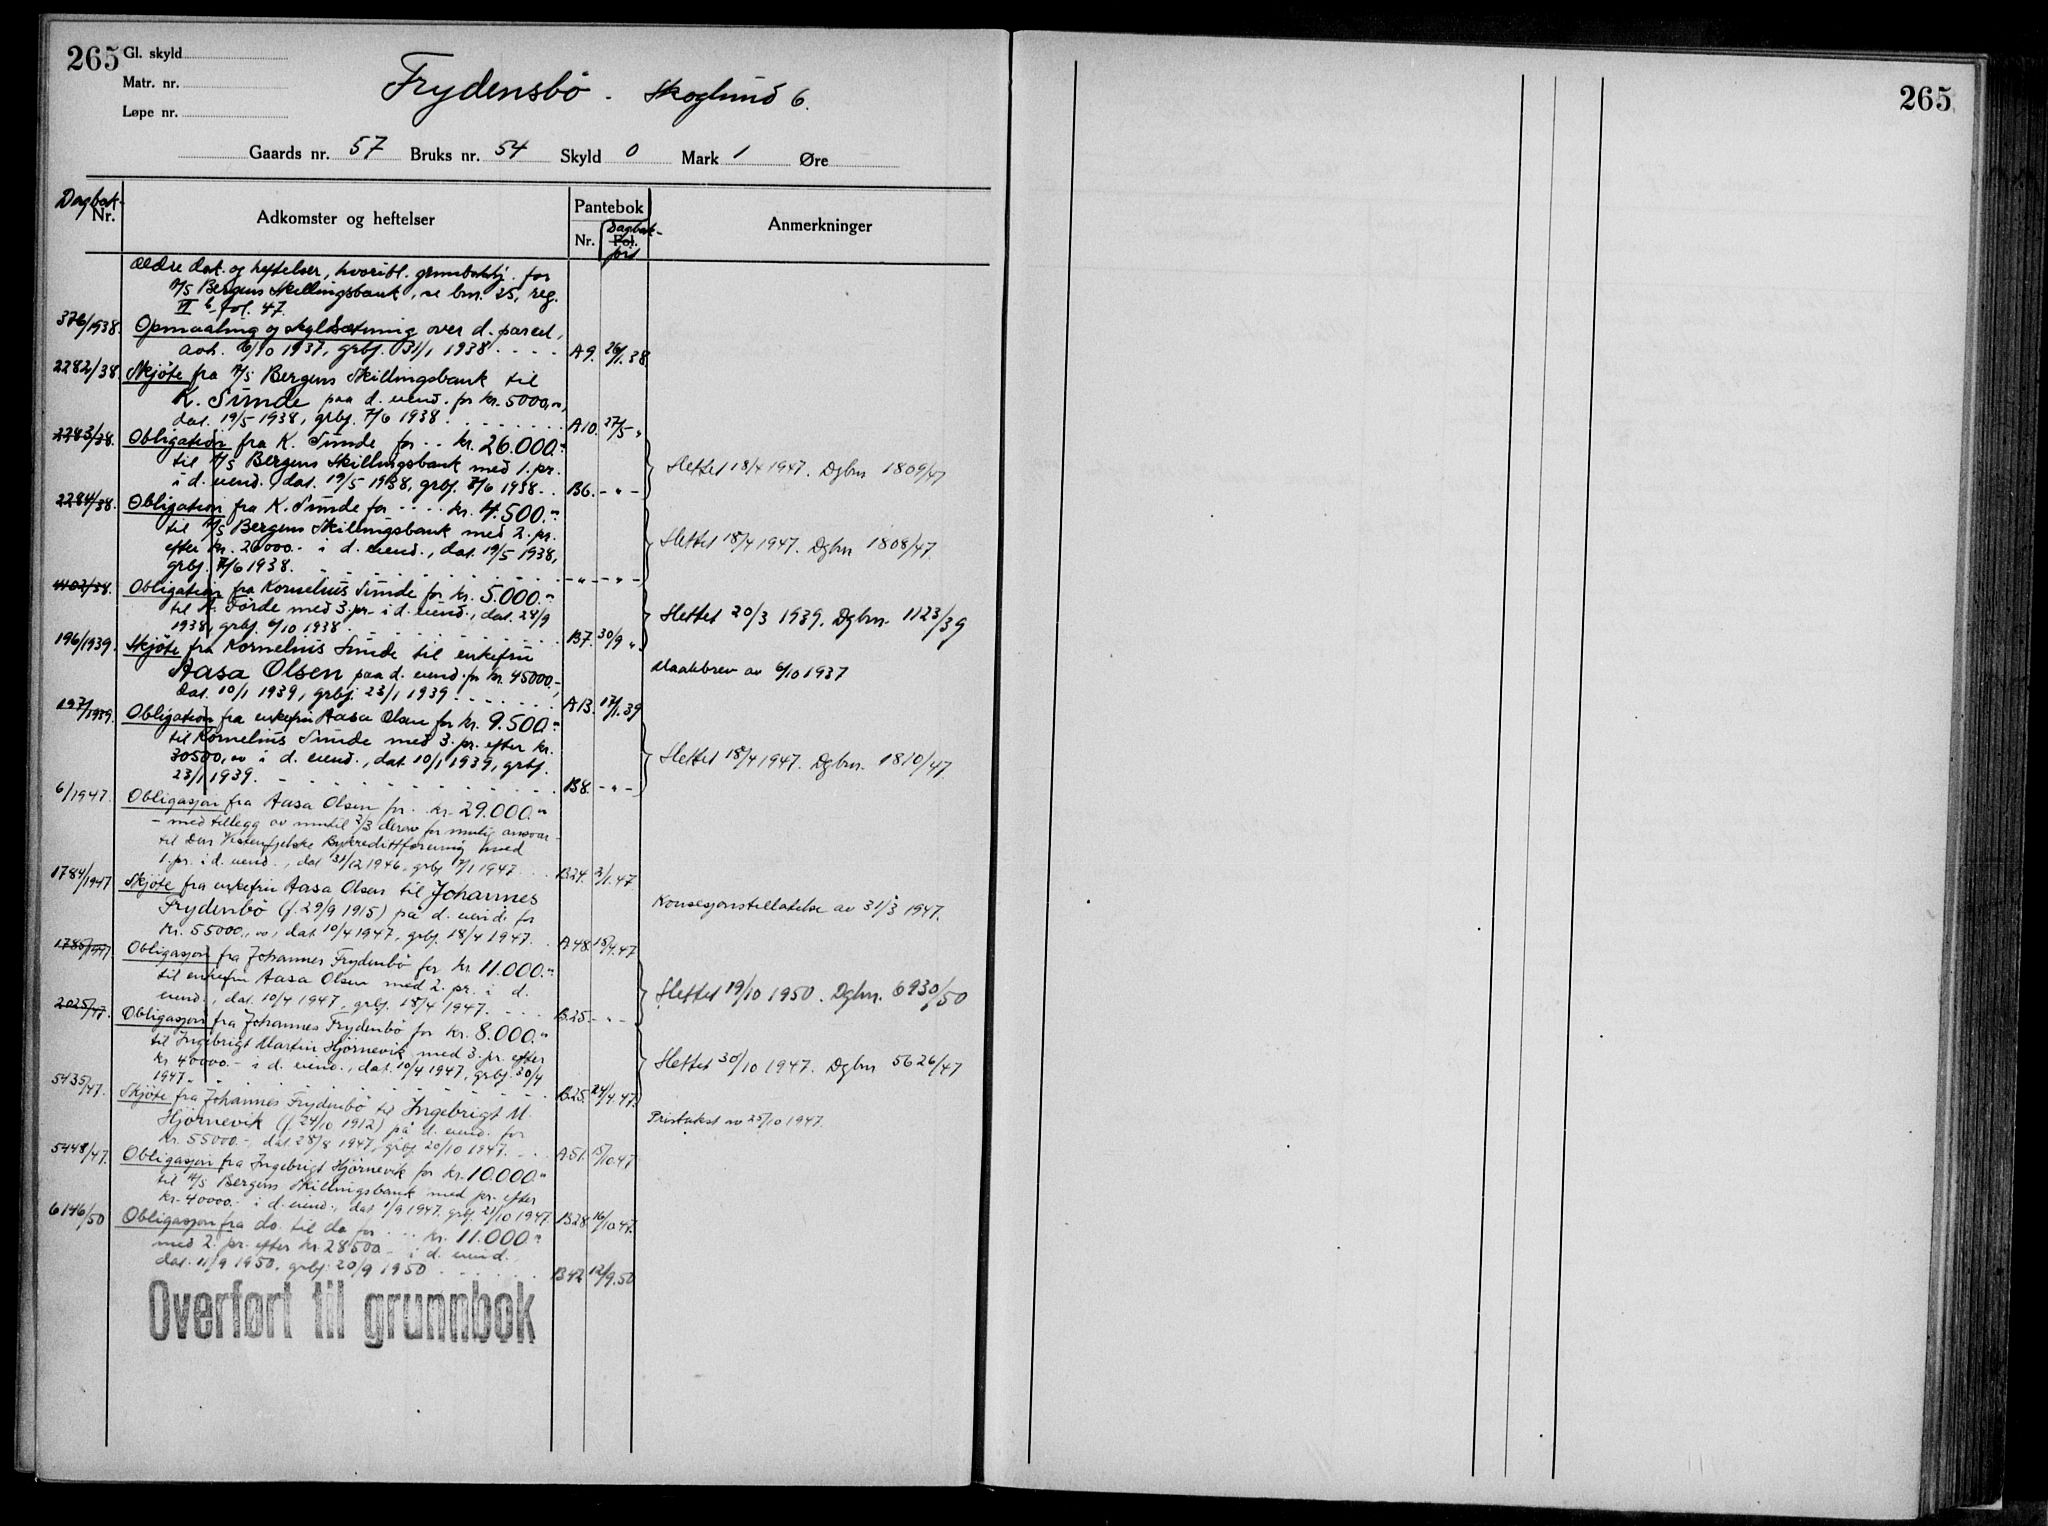 265 Gl. skyld
Matr. nr.
Løpe nr.
Frydensbö. Skoglund 6.
Gaards nr. 57 Bruks nr. 54 Skyld 0 Mark 1 Øre
Dagbok-
Nr.
Adkomster og heftelser
Pantebok
Nr.
Dagbok-
Fol.
ført
Anmerkninger
Ældre dok. og heftelser, hvoribl. for
A/S Bergens Skillingsbank, se bnr. 25, reg.
VI b fol. 47.
376/1938. Opmaaling og skyldsætning over d. parcel,
avh. 6/10 1937, grbf. 31/1 1938 A9. 26/1.38
2282/38 Skjöte fra A/S Bergens Skillingsbank til
K. Sunde paa d. eiend. for kr. 5000,00,
dat. 19/5 1938, grbf. 7/6 1938 A10. 27/5 "
2283/38. Obligation fra K. Sunde for kr. 26.000."
til A/S Bergens Skillingsbank med 1. pr.
i d. eiend. dat. 19/5 1938, grbf. 7/6 1938 B6. - " -
Slettet 18/4 1947. Dgbnr 1809/47
2284/38. Obligation fra K. Sunde for kr. 4.500."
til A/S Bergens Skillingsbank med 2. pr.
efter kr. 26000.- i d. eiend., dat. 19/5 1938,
grbf. 7/6 1938. - " - " -
Slettet 18/4 1947. Dgbnr 1808/47
4402/38. Obligation fra Kornelius Sunde for kr. 5.000."
til K. Förde med 3. pr. i d. eiend., dat. 24/9
1938, grbf. 6/10 1938 B7. 30/9 "
Slettet 20/3 1939. Dgbnr. 1123/39
196/1939. Skjöte fra Kornelius Sunde til enkefru
Aasa Olsen paa d. eiend. for kr. 45000.-,
dat. 10/1 1939, grbf. 23/1 1939 A13. 17/1.39
Maalebrev av 6/10 1937
197/1939. Obligation fra enkefru Aasa Olsen for kr. 9.500."
til Kornelius Sunde med 3. pr. efter kr.
30500,00 i d. eiend., dat. 10/1 1939, grbf.
23/1 1939. B8. - " -
Slettet 18/4 1947. Dgbnr. 1810/47
6/1947. Obligasjon fra Aasa Olsen for kr. 29.000."
- med tillegg av inntil 2/3 derav for mulig ansvar -
til Den Vestenfjelske Bykredittforening med
1. pr. i d. eiend., dat 31/12 1946, grbf 7/1 1947. B24. 3/1.47
1784/1947 Skjöte fra enkefru Aasa Olsen til Johannes
Frydenbö (f. 29/9 1915) på d. eiend. for
kr. 55000,00, dat. 10/4 1947, grbf. 18/4 1947. A48. 15/4.47
Konsesjonstillatelse av 31/3 1947.
1785/1947. Obligasjon fra Johannes Frydenbö for kr. 11.000."
til enkefru Aasa Olsen med 2. pr. i d.
eiend., dat. 10/4 1947, grbf. 18/4 1947. B25. - " -
Slettet 19/10 1950. Dgbnr. 6930/50
2025/47. Obligasjon fra Johannes Frydenbö for kr. 8.000."
til Ingebrigt Martin Hjörnevik med 3. pr. efter
kr 40000.- i d. eiend., dat. 10/4 1947, grbf. 30/4
1947. B25. 24/4.47.
Slettet 30/10 1947. Dgbnr 5626/47
5435/47. Skjöte fra Johannes Frydenbö til Ingebrigt M.
Hjörnevik (f. 24/10 1912) på d. eiend. for
kr. 55000.-, dat. 28/8 1947, grbf. 20/10 1947. A51. 15/10.47
Pristakst av 25/10 1947.
5448/47. Obligasjon fra Ingebrigt Hjörnevik for kr. 10.000."
til A/S Bergens Skillingsbank med pr. efter
kr. 40000.- i d. eiend., dat 1/9 1947. grbf. 21/10 1947 B28. 16/10.47.
6146/50 Obligasjon fra do. til do for kr. 11.000."
med 2. pr. efter kr. 28500.- i d. eiend.,
dat. 11/9 1950, grbf. 20/9 1950 B42 12/9.50
Overført til grunnbok
265